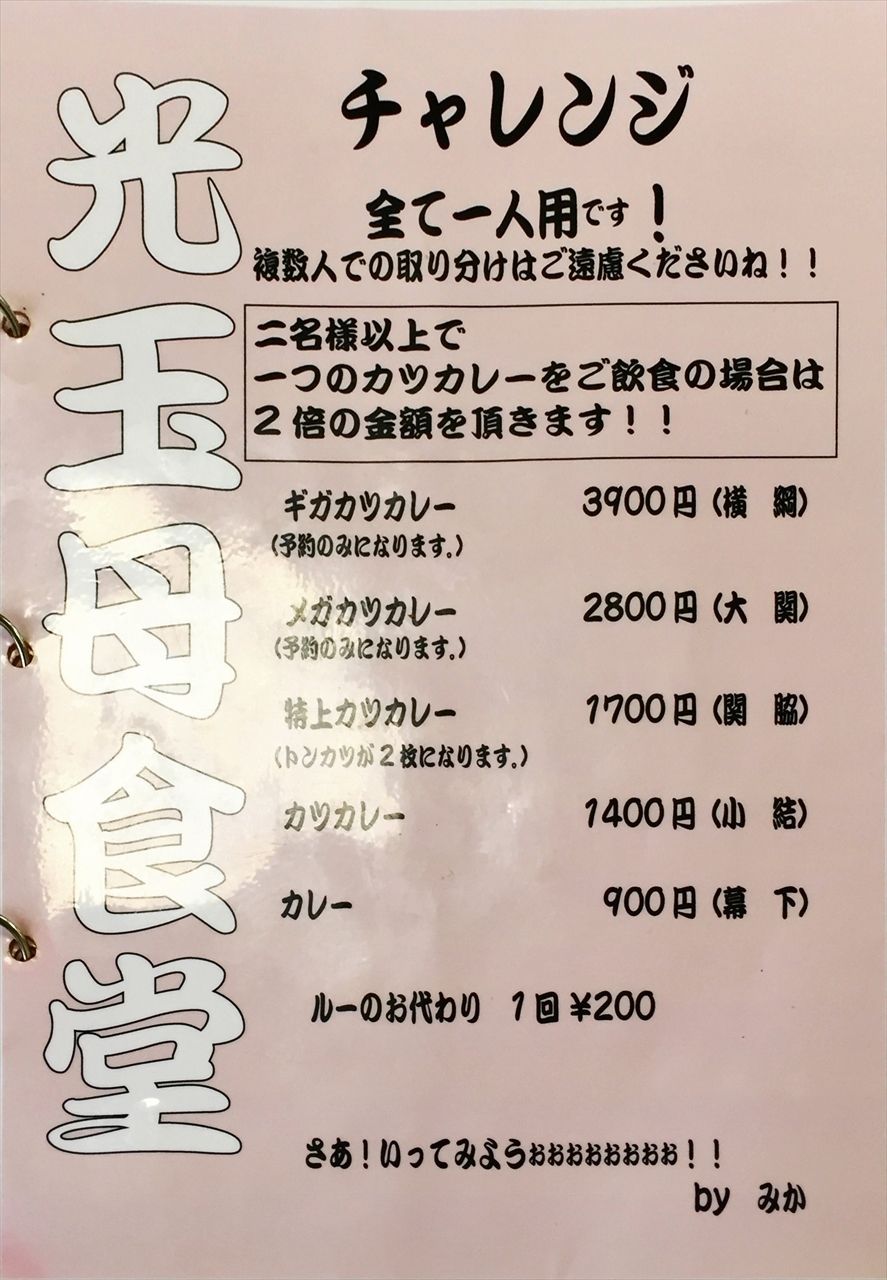 光玉母食堂
チャレンジ
全て一人用です!
複数人での取り分けはご遠慮くださいね!!
二名様以上で
一つのカツカレーをご飲食の場合は
2倍の金額を頂きます!!
ギガカツカレー 3900円(横 綱)
(予約のみになります。)
メガカツカレー 2800円(大 関)
(予約のみになります。)
特上カツカレー 1700円(関 脇)
(トンカツが2枚になります。)
カツカレー 1400円(小 結)
カレー 900円(幕 下)
ルーのお代わり 1回¥200
さあ!いってみようぉぉぉぉぉぉぉぉ!!
by みか